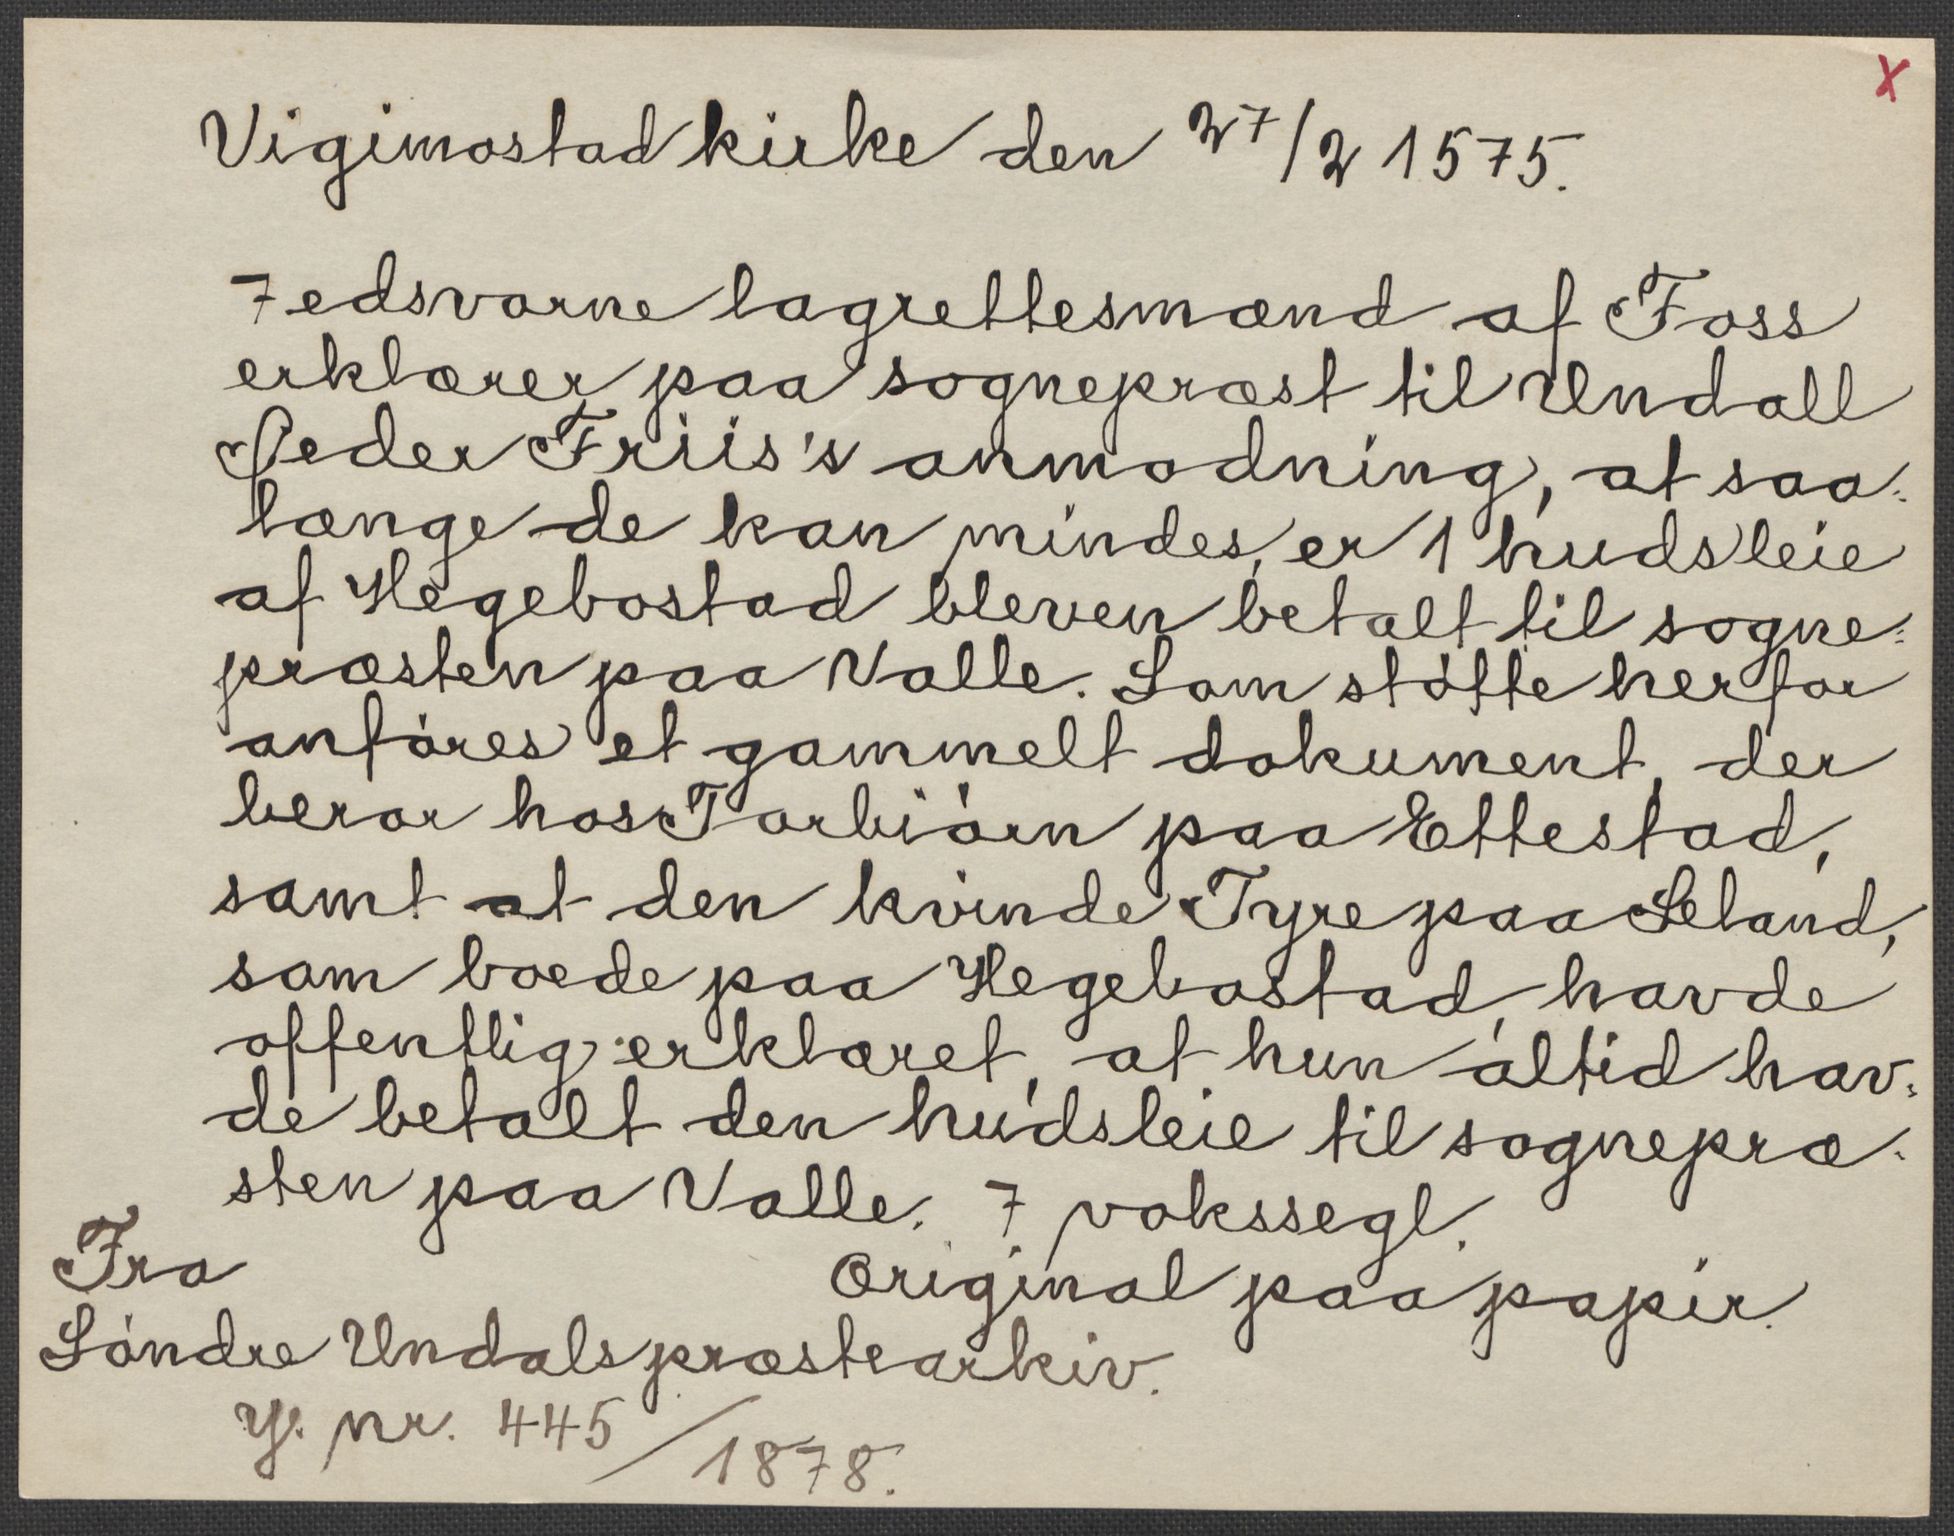 X
Vigimostad kirke den 27/2 1575.
7 edsvorne lagrettesmænd af Foss
erklærer paa sognepræst til Undall
Peder Friis's anmodning, at saa-
længe de kan mindes, er 1 hudsleie
af Hegebostad bleven betalt til sogne-
præsten paa Valle. Som støtte herfor
anføres et gammelt dokument, der
beror hos Torbiørn paa Ettestad,
samt at den kvinde Tyre paa Leland,
som boede paa Hegebostad, havde
offentlig erklæret, at hun altid hav-
de betalt den hudsleie til sognepræ-
sten paa Valle. 7 vokssegl.
Fra Original paa papir.
Søndre Undals præstearkiv.
J. nr. 445/1878.